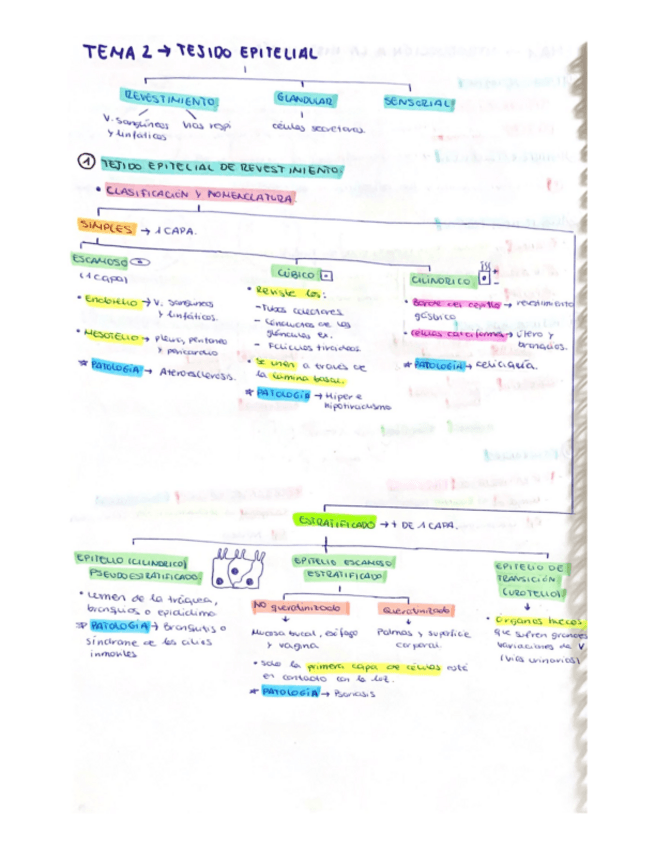 TEMA 2 → TEJIDO EPITELIAL
REVESTIMIENTO
GLANDULAR
SENSORIAL
V. sanguíneos
y linfáticos
Vías respi
células secretoras.
① TEJIDO EPITELIAL DE REVESTIMIENTO:
• CLASIFICACIÓN Y NOMENCLATURA.
SIMPLES → 1 CAPA.
ESCAMOSO
(1 capa)
• Endotelio → V. sanguíneos
y linfáticos.
• MESOTELIO → pleura, peritoneo
y pericardio
* PATOLOGÍA → Ateroesclerosis.
CÚBICO
• Reviste los:
- Tubos colectores
- Conductos de las
glándulas ex.
- Folículos tiroideos
• Se unen a través de
la lámina basal.
* PATOLOGÍA → Hiper e
hipotiroidismo
CILINDRICO
• Borde del cepillo → revestimiento
gástrico
• células caliciformes → útero y
bronquios.
* PATOLOGÍA → celiaquía.
ESTRATIFICADO → + DE 1 CAPA.
EPITELIO (CILINDRICO)
PSEUDOESTRATIFICADO:
• Lumen de la tráquea,
bronquios o epidídimo
* PATOLOGÍA → Bronquitis o
síndrome de los cilios
inmoviles
EPITELIO ESCAMOSO
ESTRATIFICADO
No queratinizado
Mucosa bucal, esófago
y vagina
Queratinizado
Palmas y superficie
corporal.
• Solo la primera capa de células está
en contacto con la luz.
* PATOLOGÍA → Psoriasis
EPITELIO DE
TRANSICIÓN
(UROTELIO)
• Órganos huecos
que sufren grandes
variaciones de V.
(vías urinarias)